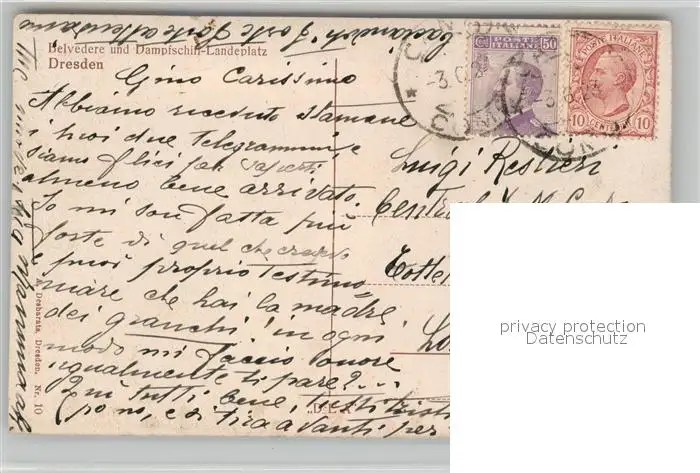 Belvedere und Dampfschiff-Landeplatz
Dresden
Gino Carissimo
Abbiamo ricevuto stamane
i tuoi due telegrammi, e
siamo felici per saperti
almeno bene arrivato.
Io mi son fatta più
forte di quel che credevo
e puoi proprio testimo,
niare che hai la madre
dei granchi! in ogni
modo mi faccio onore
ugualmente ti pare?...
Qui tutti bene, tutti tristi
po no, e si tira avanti per
Baciandoti forte forte
Luigi Restieri
Central Y.M.C.
Totte
Lo
POSTE ITALIANE
CENT 50
POSTE ITALIANE
10 CENTESIMI 10
COMO
A. Desbarats, Dresden. Nr. 10
privacy protection
Datenschutz